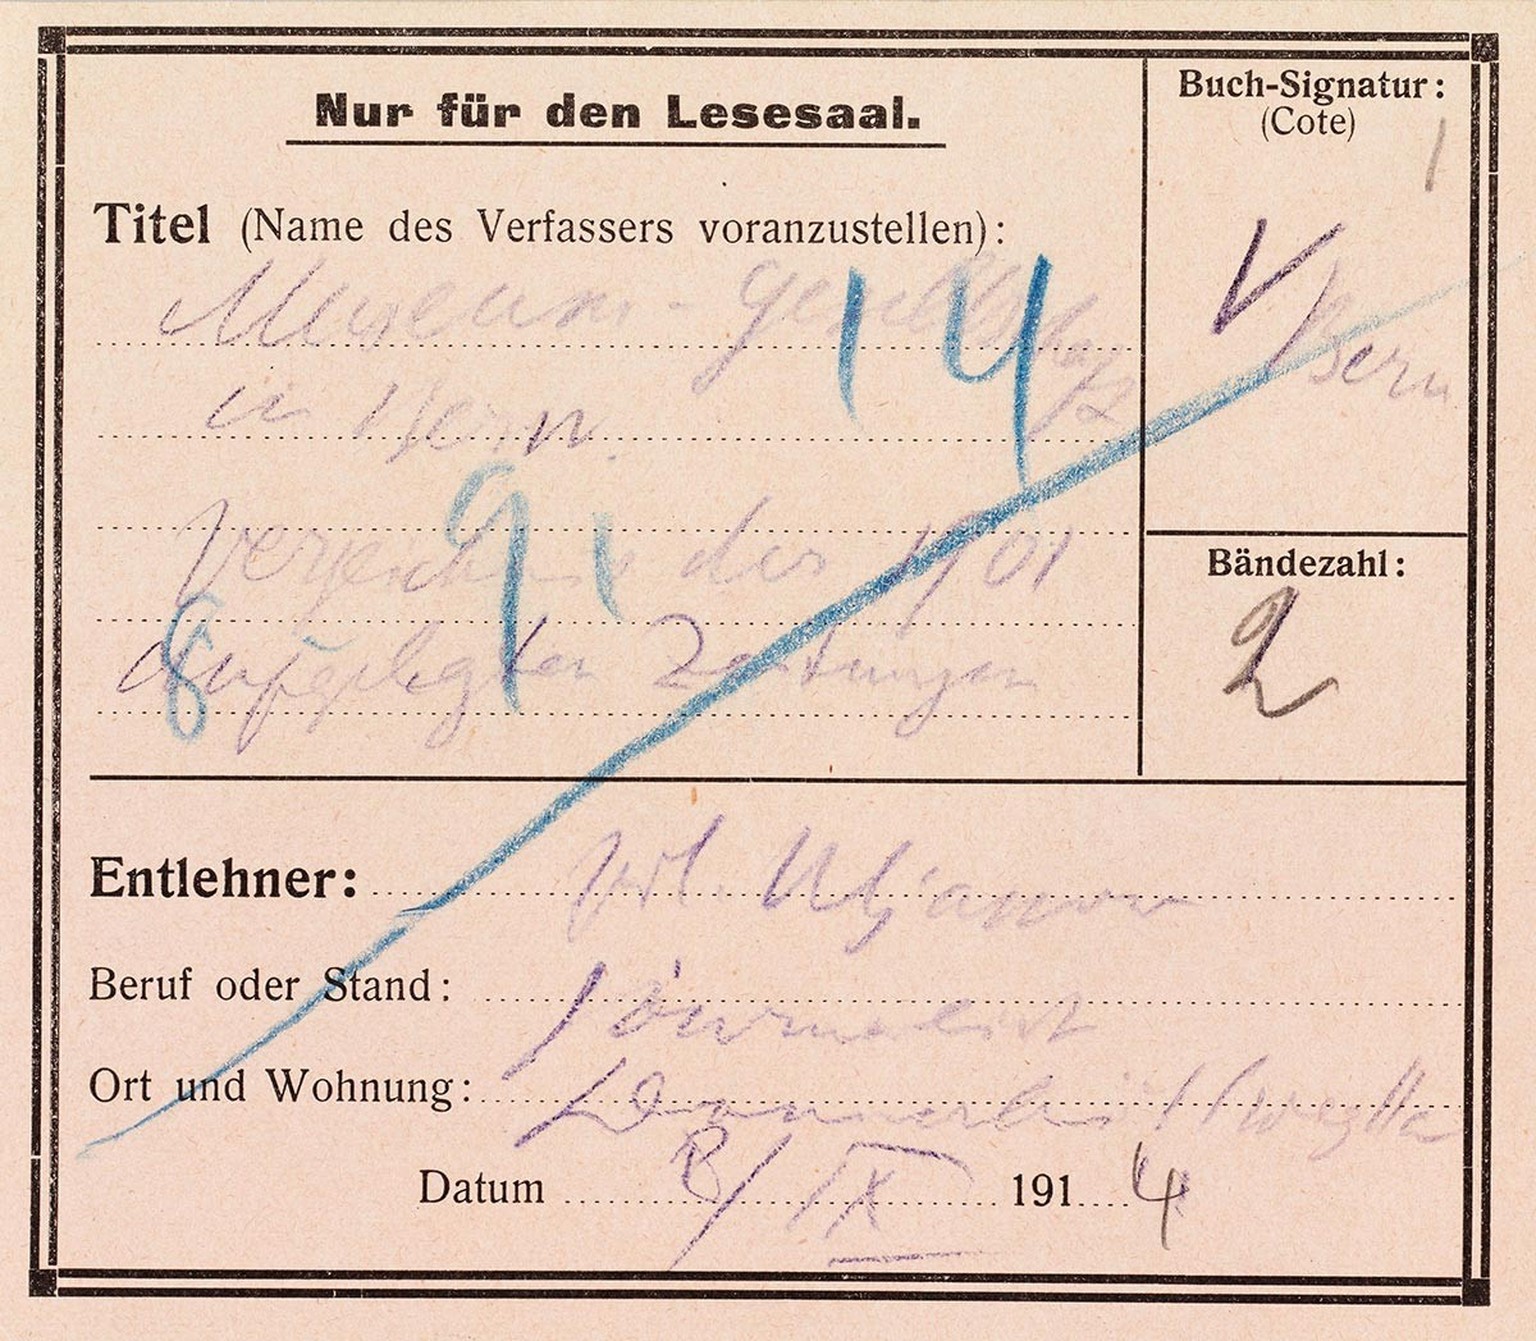 Nur für den Lesesaal.
Buch-Signatur:
(Cote)
1
Titel (Name des Verfassers voranzustellen):
Museums-Gesellschaft
in Bern.
V Bern
14
Verzeichnis der 1901
aufgelegten Zeitungen
8 9 1
Bändezahl:
2
Entlehner: Wl. Uljanow
Beruf oder Stand: Journalist
Ort und Wohnung:
Datum 8/IX 1914